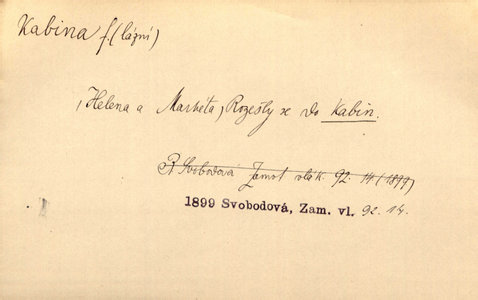 Kabina f. (lázní)
(Helena a Markéta) Rozešly se do kabin.
R Svobodová Zamot vlák. 92. 14. (1899)
1899 Svobodová, Zam. vl. 92. 14.